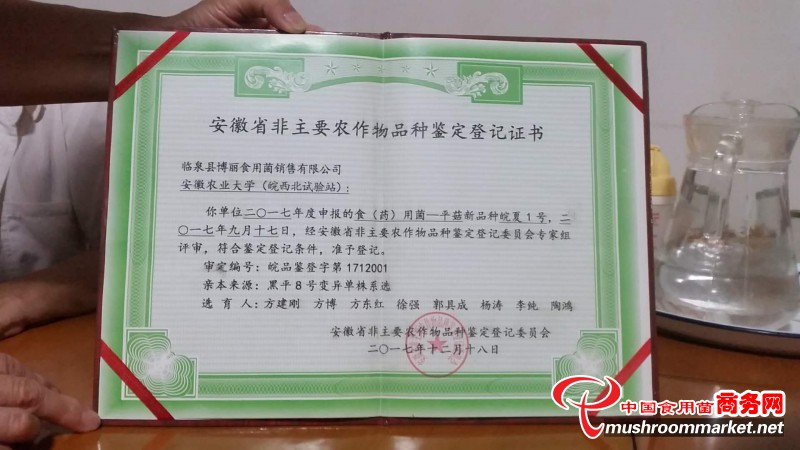 安徽省非主要农作物品种鉴定登记证书
临泉县博丽食用菌销售有限公司
安徽农业大学（皖西北试验站）：
你单位二〇一七年度申报的食（药）用菌—平菇新品种皖夏1号，二
〇一七年九月十七日，经安徽省非主要农作物品种鉴定登记委员会专家组
评审，符合鉴定登记条件，准予登记。
审定编号：皖品鉴登字第1712001
亲本来源：黑平8号变异单株系选
选育人：方建刚 方博 方东红 徐强 郭具成 杨涛 李纯 陶鸿
安徽省非主要农作物品种鉴定登记委员会
二〇一七年十二月十八日
中国食用菌商务网
mushroommarket.net